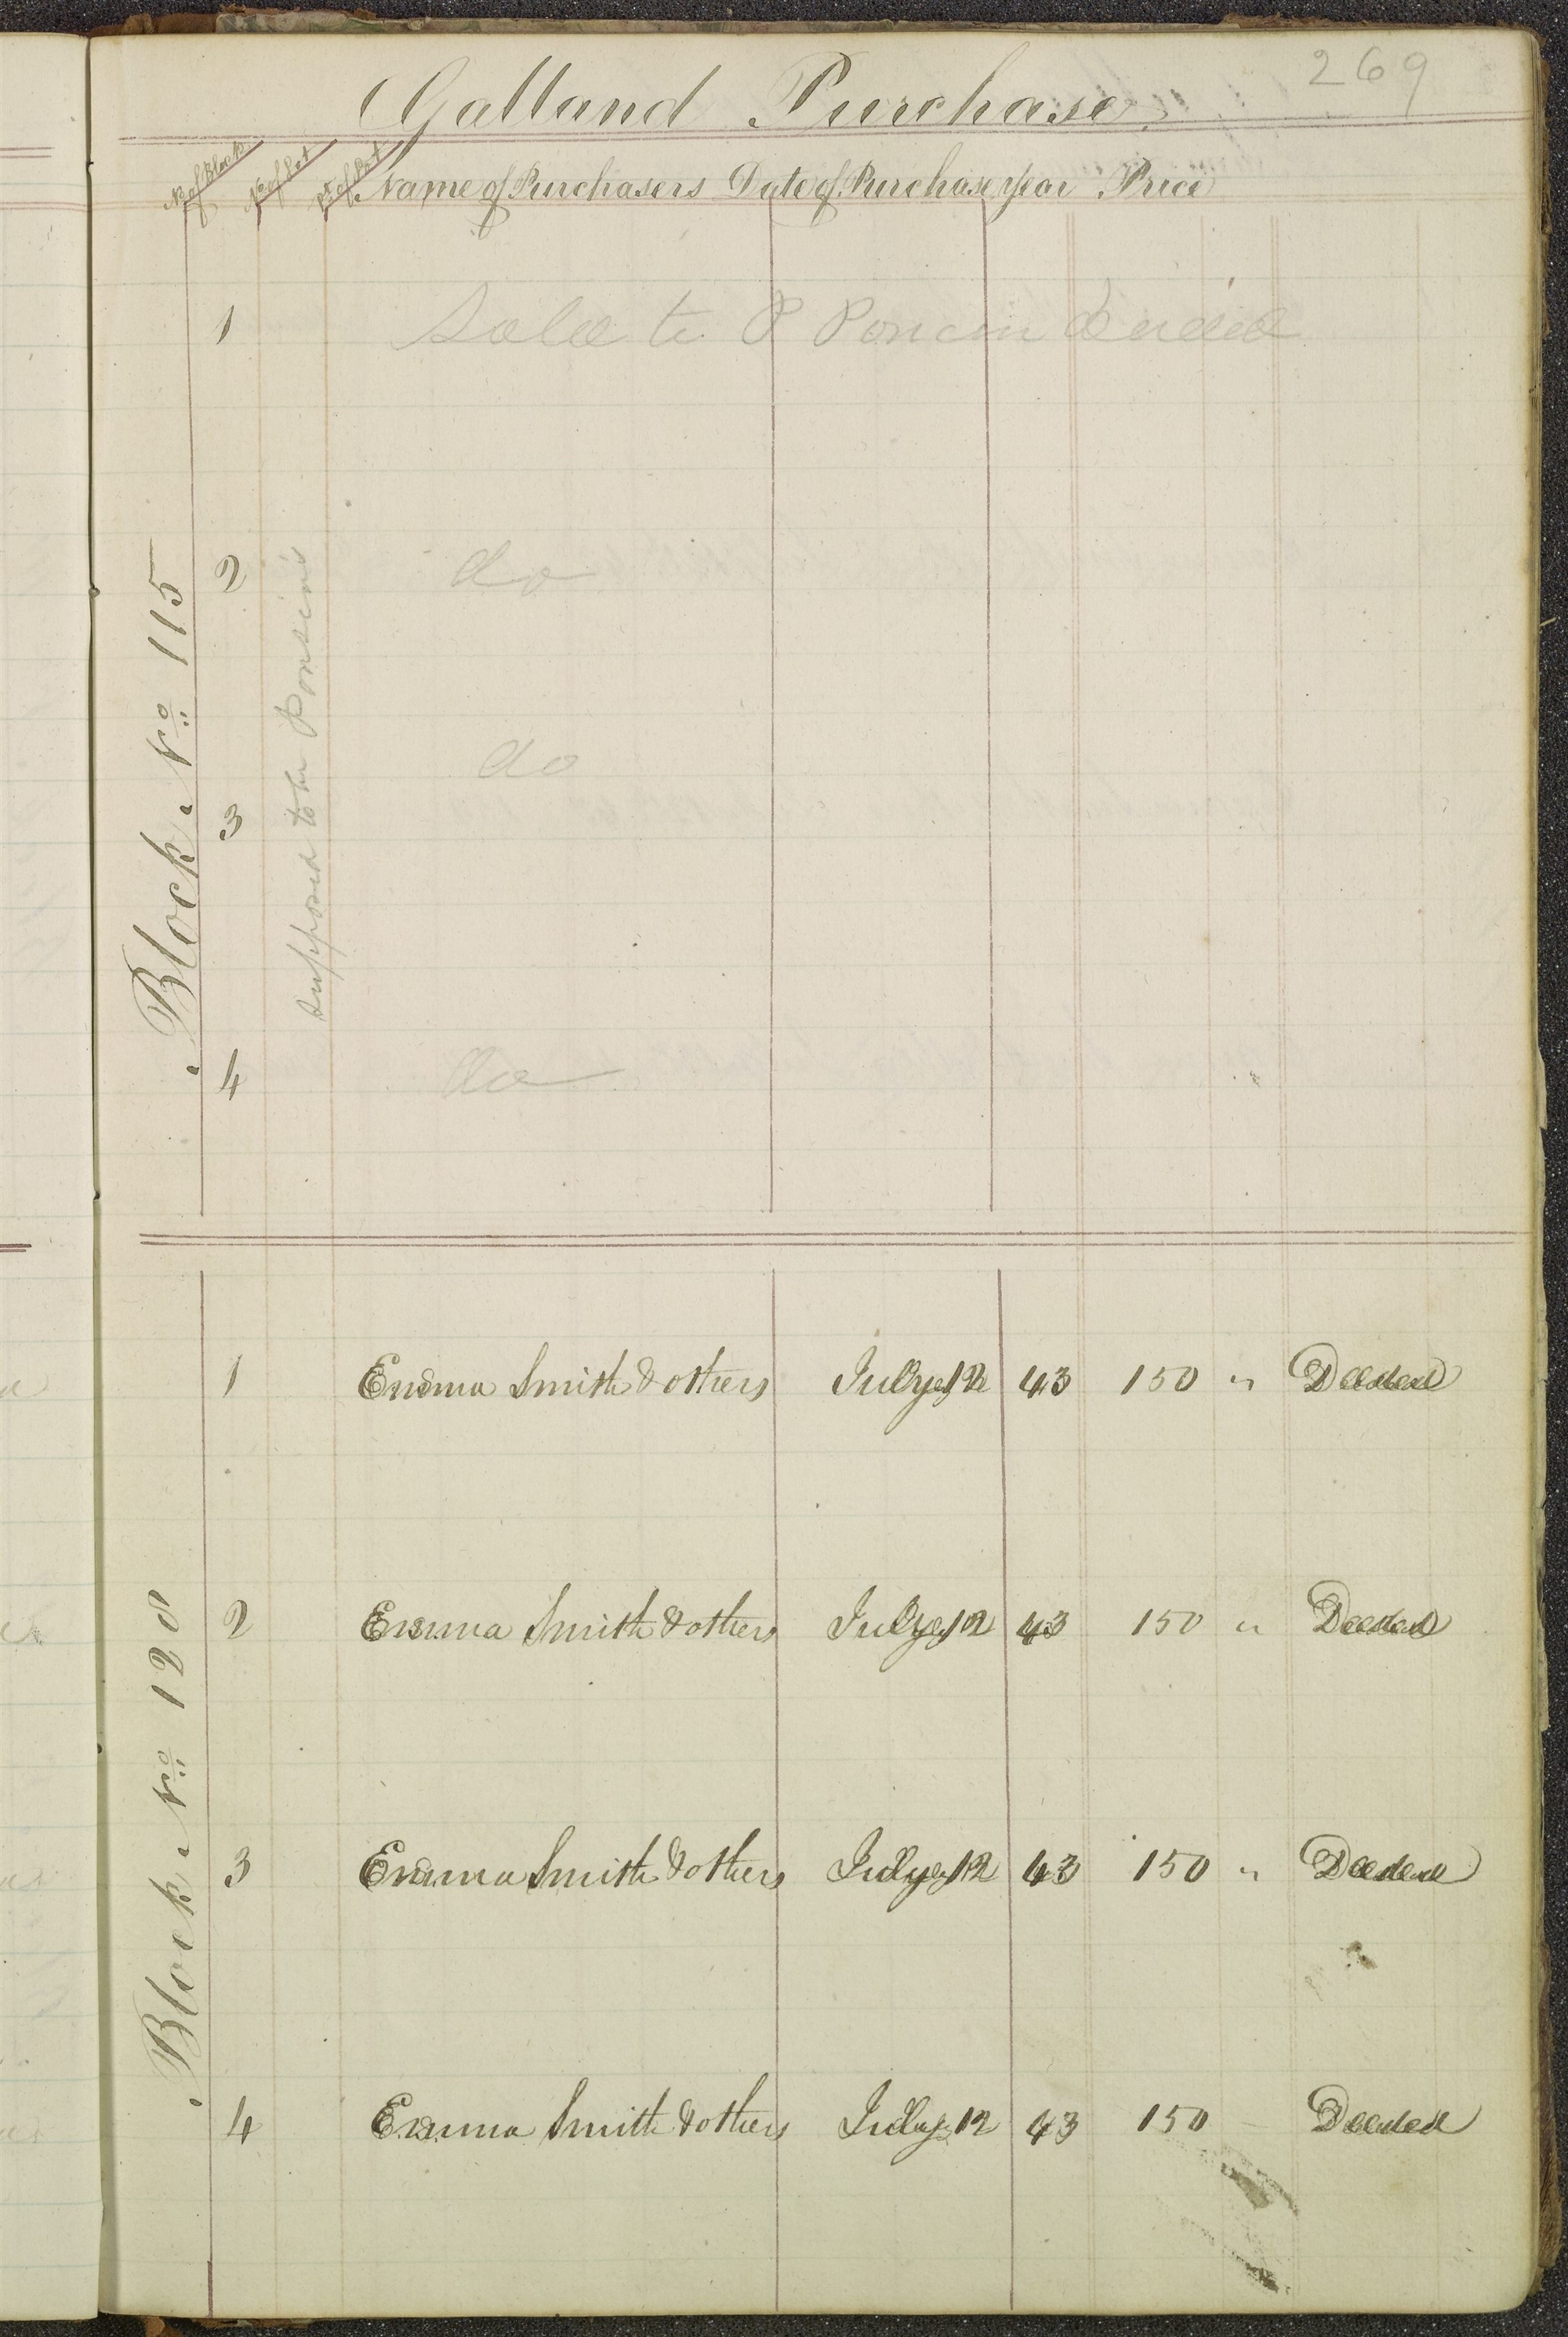 269
Galland Purchase
No of Block No of Lot Pt of Lot Name of Purchasers Date of Purchase year Price
Block No 115
supposed to be Poncin's
1 Sold to P Poncin Deeded
2 do
3 do
4 do
Block No 128
1 Emma Smith & others July 12 43 150 " Deeded
2 Emma Smith & others July 12 43 150 " Deeded
3 Emma Smith & others July 12 43 150 " Deeded
4 Emma Smith & others July 12 43 150 Deeded